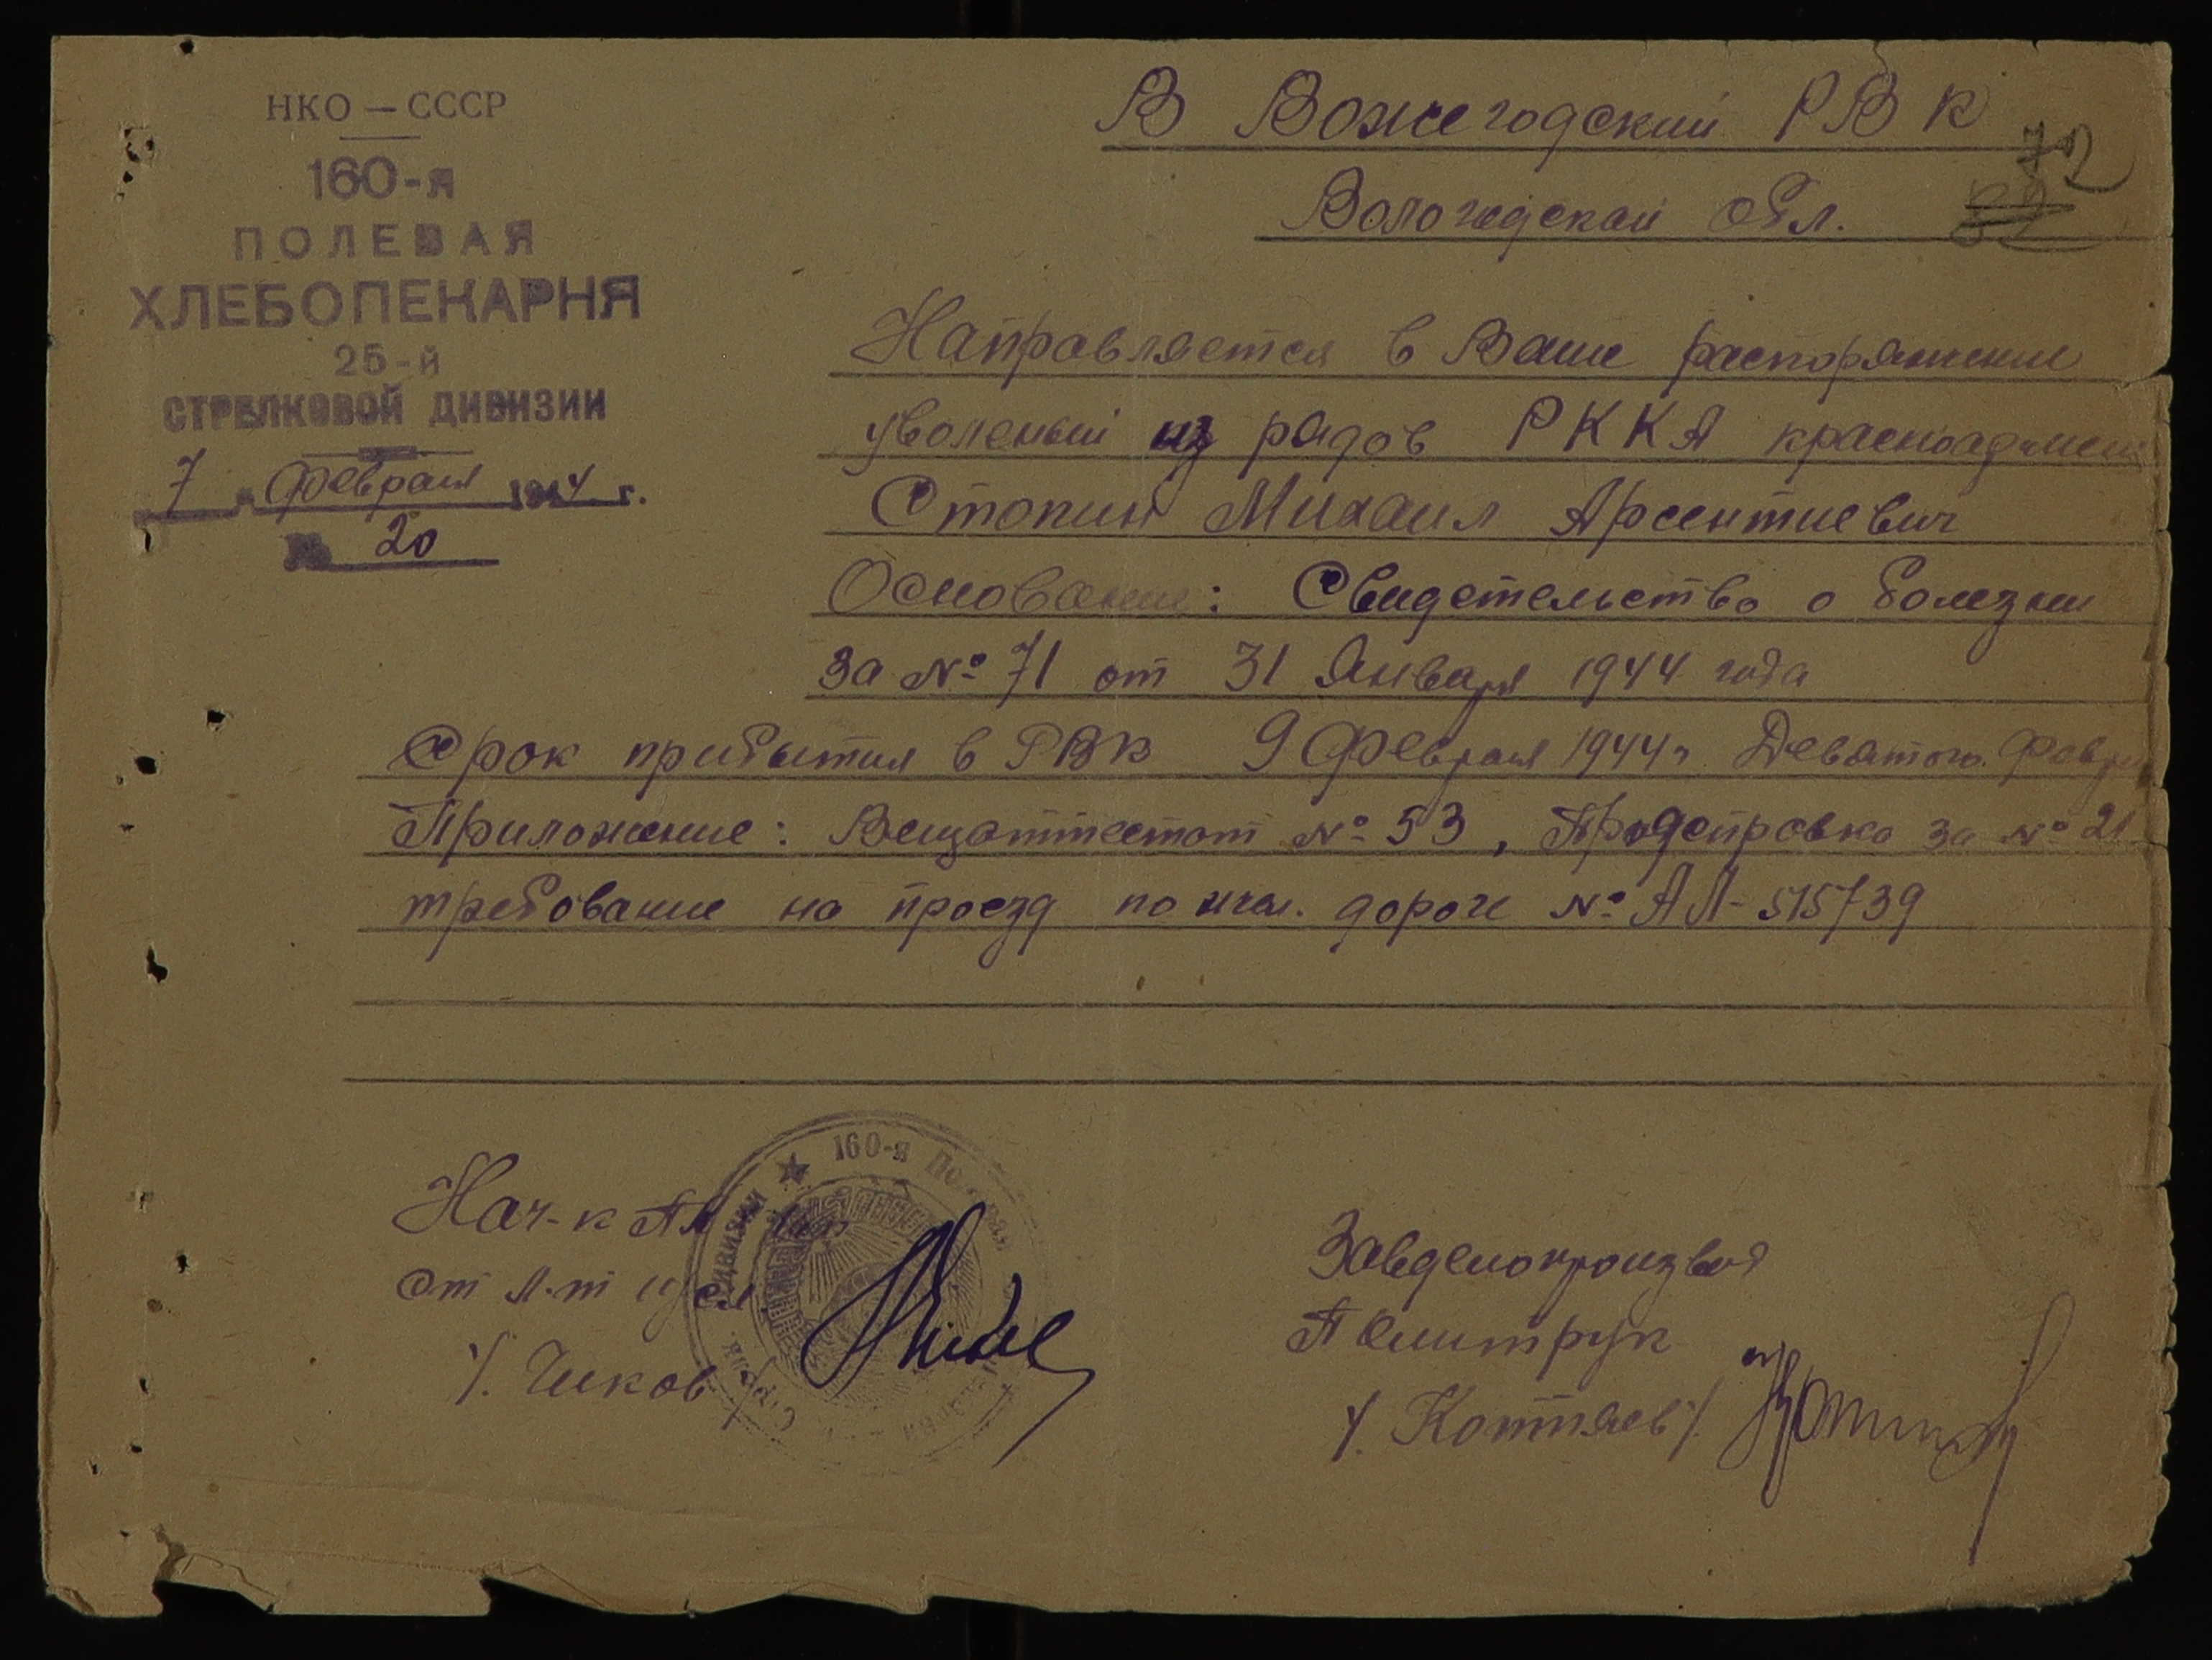 НКО — СССР
160-я
ПОЛЕВАЯ
ХЛЕБОПЕКАРНЯ
25-й
СТРЕЛКОВОЙ ДИВИЗИИ
7 " Февраля 1944 г.
№ 20
В Вожегодский РВК
72
Вологодской обл.
Направляется в Ваше распоряжение
уволеный из рядов РККА
Стопин Михаил Арсентиевич
Основание: Свидетельство о болезни
за № 71 от 31 Января 1944 года
Срок прибытия в РВК 9 Февраля 1944 г Девятого
Приложение: Вещаттестат № 53, за № 21
требование на проезд по жел. дороге № АЛ-515739
160-я
дивизии
Нач-к
/. Чиков /
Завделопроизвод
Политрук
/. Коптяев /.